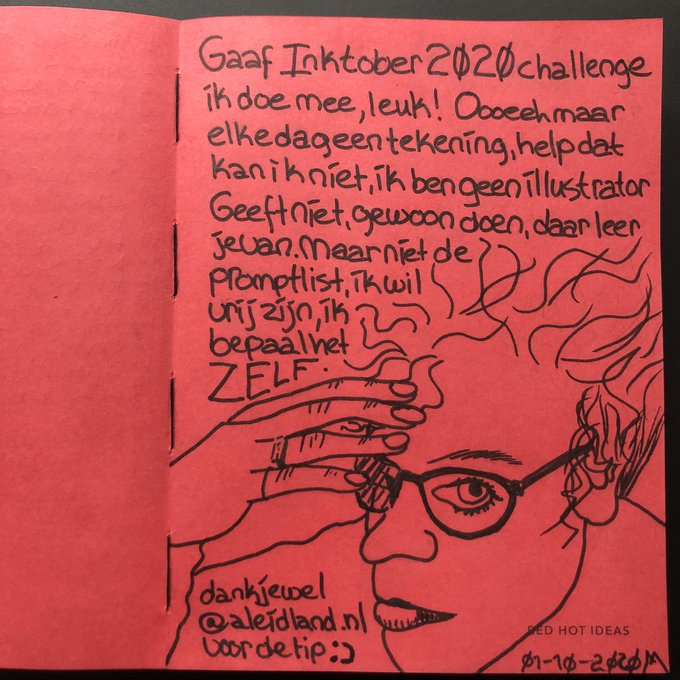 Gaaf Inktober 2020 challenge
ik doe mee, leuk! Oooeeh maar
elke dag een tekening, help dat
kan ik niet, ik ben geen illustrator
Geeft niet, gewoon doen, daar leer
je van. Maar niet de
promptlist, ik wil
vrij zijn, ik
bepaal het
ZELF.
dankjewel
@aleidland.nl
voor de tip :)
RED HOT IDEAS
01-10-2020 M